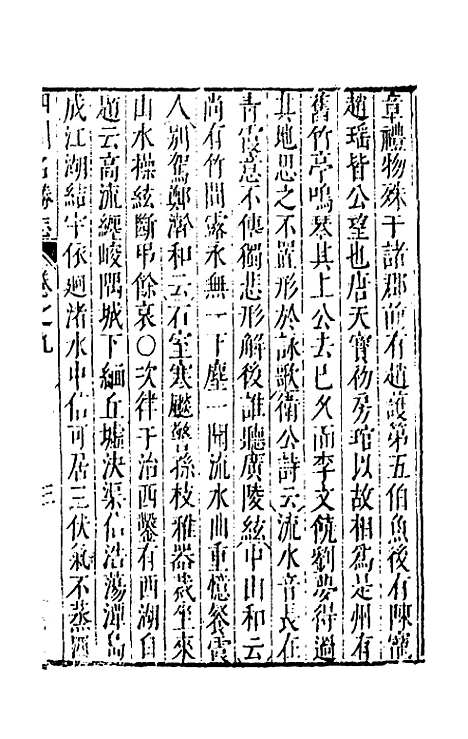 章禮物殊于諸郡前有趙護第五伯魚後有陳寵
趙瑶皆公望也唐天寶初房琯以故相爲是州有
舊竹亭鳴琴其上公去已久而李文饒劉夢得過
其地思之不置形於詠歌衛公詩云流水音長在
青霞意不傳獨悲形解後誰聽廣陵絃中山和云
尚有竹間露永無一下塵一聞流水曲重憶餐霞
人別駕鄭澣和云石室寒飈警孫枝雅器裁坐來
山水操絃斷弔餘哀〇次律于治西鑿有西湖自
題云高流纒峻隅城下緬丘墟決渠信浩蕩潭島
成江湖結宇依廻渚水中信可居三伏氣不蒸酒
四川名勝志 卷之九 三